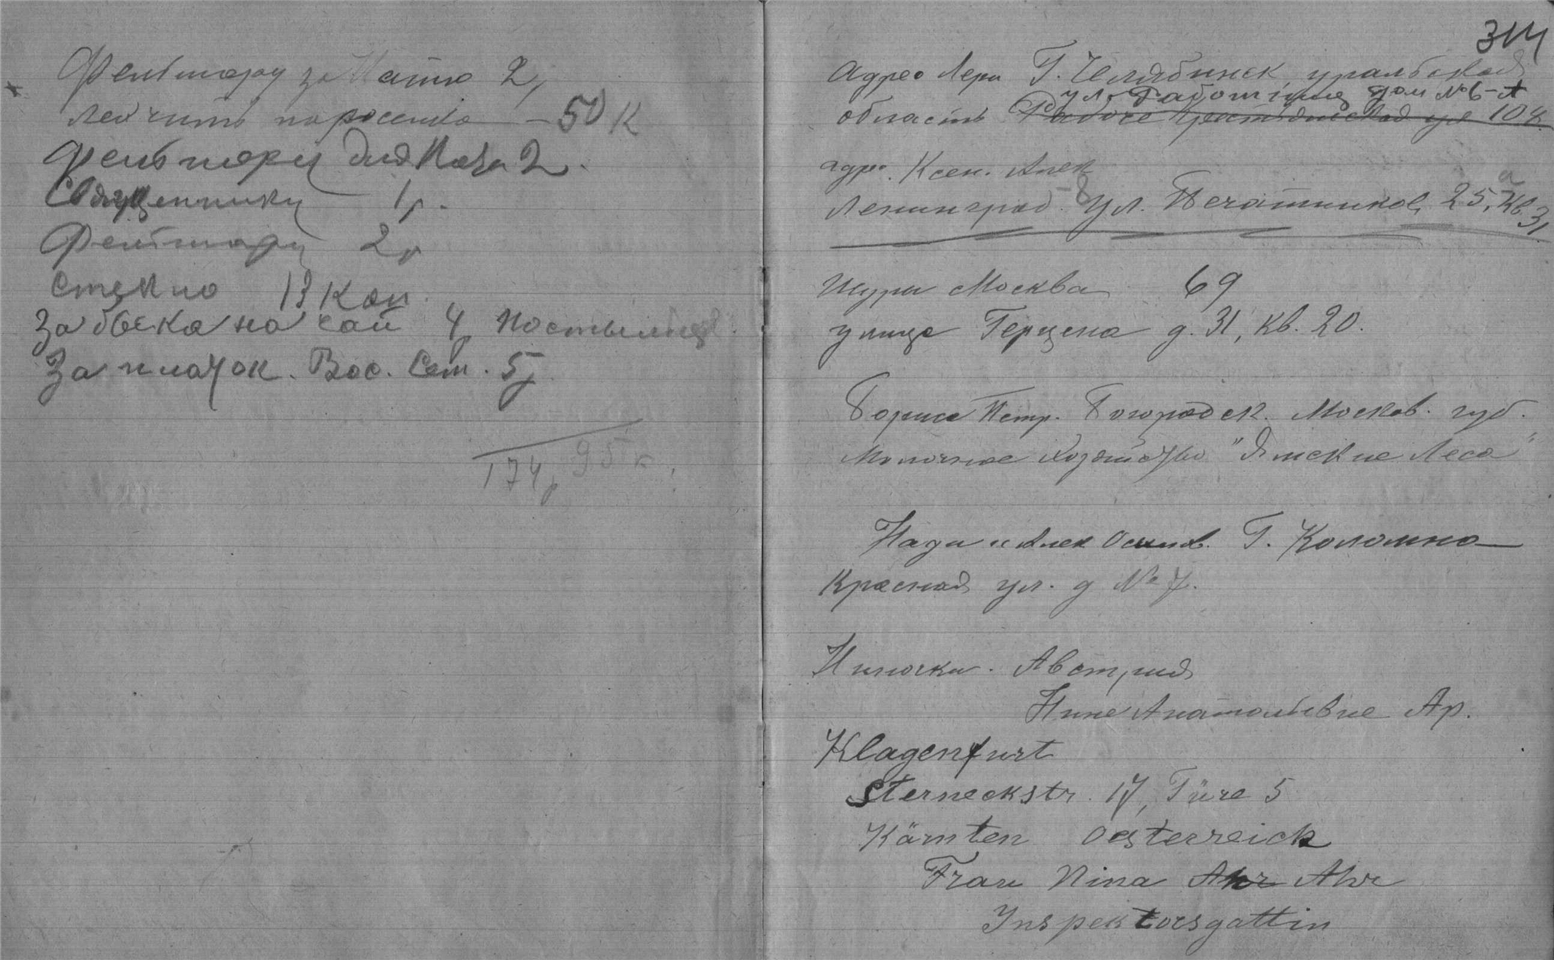 Фельшеру за Катю 2р
лечить поросенка – 50 К
Фельшеру для 2.
Священнику 1р.
Фельшеру 2р
Стекло 13 Коп.
За
За платок. Вос. Сем. 5р
174р 95к.
314
Адрес Лели Г. Челябинск уральская
ул. Работниц дом № 6-А
область Рабоче крестьянская ул 104.
адр. Ксен. Алек
Ленинград ул. Печатников 25, кв 31
Шуры Москва 69
улица Герцена д. 31, кв. 20.
Бориса Петр. Богородск. Москов. губ.
Молочное хозяйство "Ямские Леса"
Нади и Алек Осипов. Г. Коломна
Красная ул. д № 7.
Ниночки. Австрия
Нине Анатольевне Ар.
Klagenfurt
Sterneckstr. 17, Türe 5
Kärnten Oesterreich
Frau Nina Ahr Ahr
Inspektorsgattin